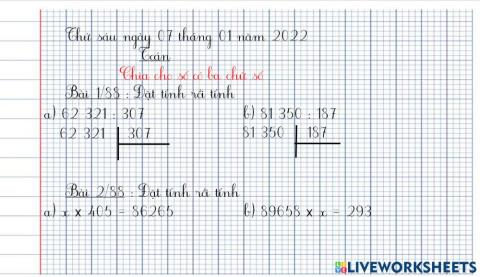 Thứ sáu ngày 07 tháng 01 năm 2022
Toán
Chia cho số có ba chữ số
Bài 1/88 : Đặt tính rồi tính
a) 62 321 : 307 b) 81 350 : 187
62 321 307 81 350 187
Bài 2/88 : Đặt tính rồi tính
a) x x 405 = 86265 b) 89658 x x = 293
LIVEWORKSHEETS